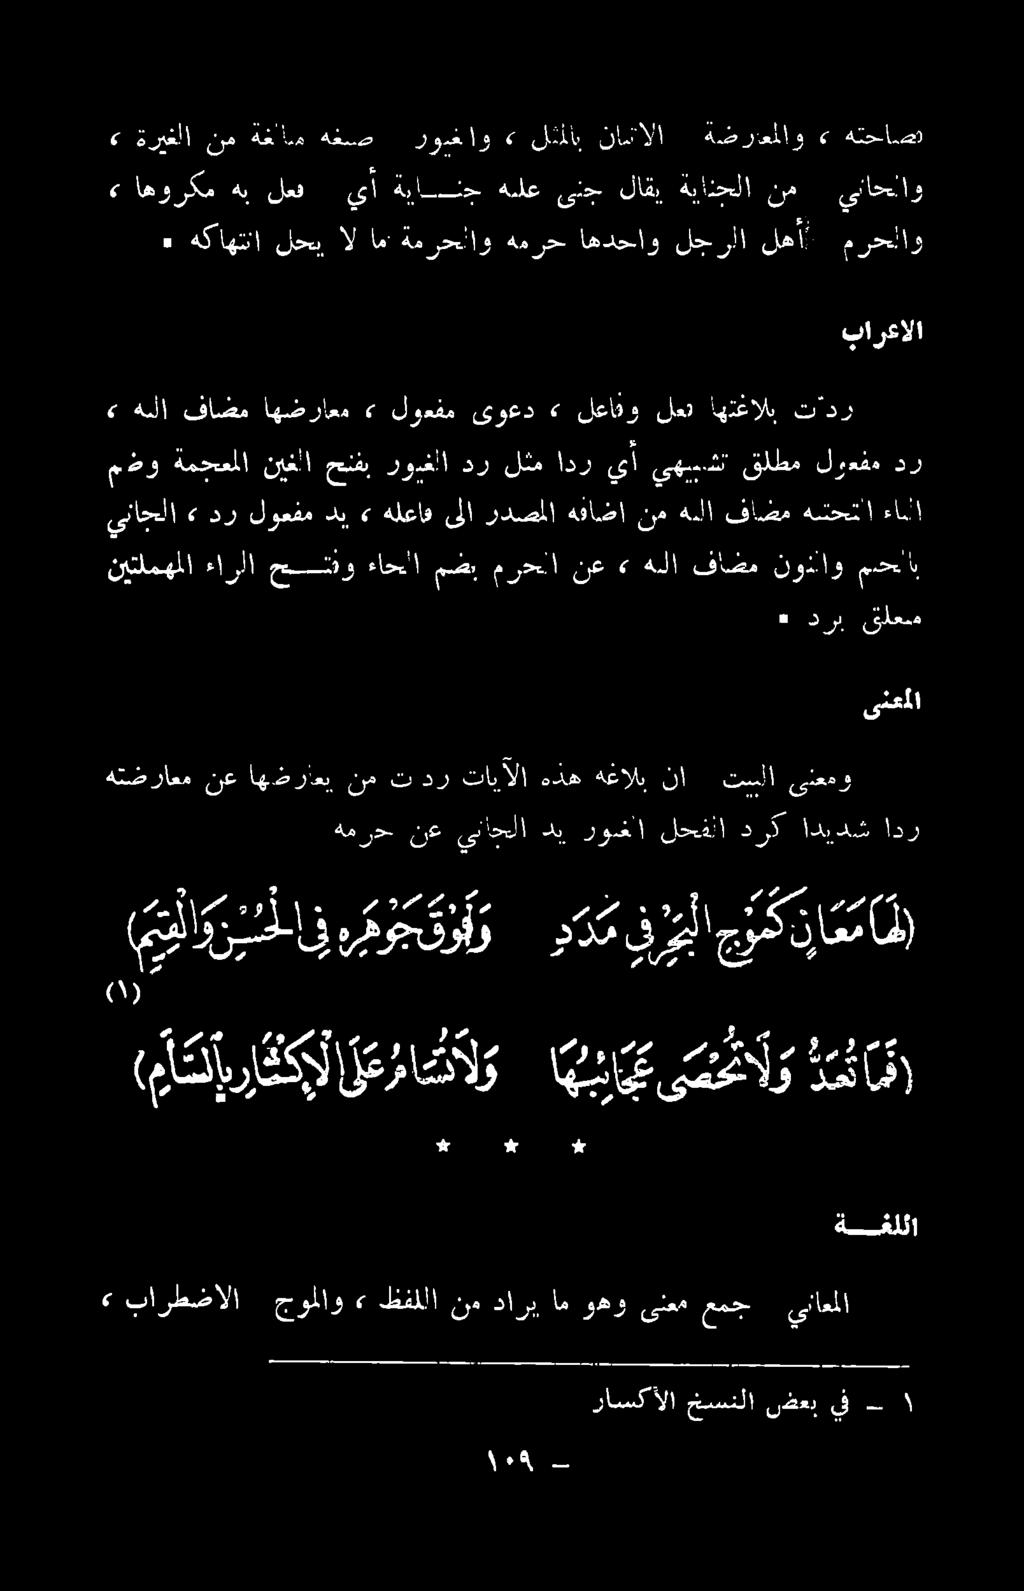 فصاحته ، والمعارضة الاتيان بالمثل ، والغيور صيغة مبالغة من الغيرة ،
والجاني من الجناية يقال جنى عليه جنــاية أي فعل به مكروها ،
والحرم أهل الرجل واحدها حرمه والحرمة ما لا يحل انتهاكه .
الاعراب
ردّت بلاغتها فعل وفاعل ، دعوى مفعول ، معارضها مضاف اليه ،
رد مفعول مطلق تشبيهي أي ردا مثل رد الغيور بفتح الغين المعجمة وضم
الياء التحتيه مضاف اليه من اضافه المصدر الى فاعله ، يد مفعول رد ، الجاني
بالجيم والنون مضاف اليه ، عن الحرم بضم الحاء وفتــح الراء المهملتين
متعلق برد .
المعنى
ومعنى البيت ان بلاغه هذه الآيات ردت من يعارضها عن معارضته
ردا شديدا كرد الفحل الغيور يد الجاني عن حرمه
(لَهَا مَعَانٍ كَمَوْجِ الْبَحْرِ فِي مَدَدٍ وَفَوْقَ جَوْهَرِهِ فِي الْحُسْنِ وَالْقِيَمِ)
(فَمَا تُعَدُّ وَلَا تُحْصَى عَجَائِبُهَا وَلَا تُسَامُ عَلَى الْإِكْثَارِ بِالسَّأَمِ) (١)
* * *
اللغــة
المعاني جمع معنى وهو ما يراد من اللفظ ، والموج الاضطراب ،
١ - في بعض النسخ الأكسار
١٠٩ -